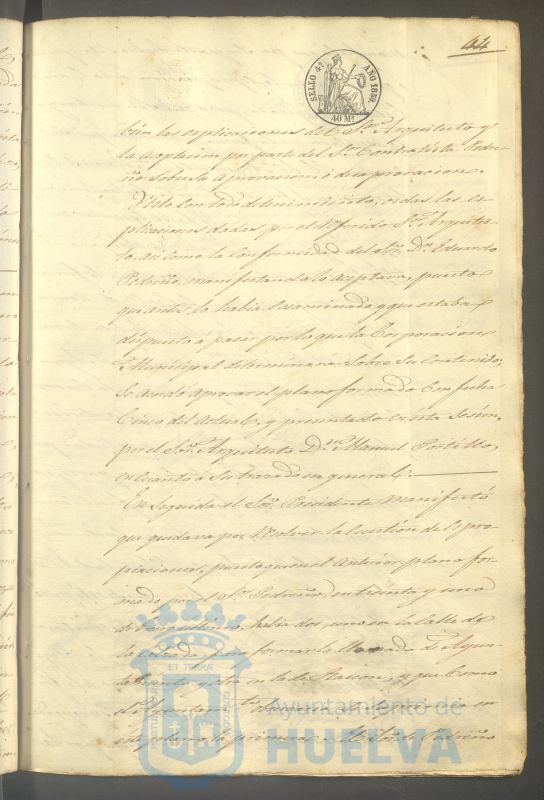 44
SELLO 4º AÑO 1859
40 Ms
bien las esplicaciones del Sr. Arquitecto y
la aceptacion por parte del Sr. Contratista Pedre-
ño sobre la aprovacion ó desaprovacion.
Visto con todo detenimiento, oidas las es-
plicaciones dadas por el referido Sr. Arquitec-
to, asi como la conformidad del Sr. Dn. Eduardo
Pedreño, manifestando lo aceptava, puesto
que antes lo habia ecsaminado y que estaba
dispuesto a pasar por lo que la Corporacion
Municipal determinara sobre su contenido;
Se acordó aprovar el plano formado con fecha
Cinco del actual, y presentado en esta Sesion,
por el Sor. Arquitecto Dn. Manuel Portillo,
en cuanto a su trazado en general.
En seguida el Sor. Presidente manifestó
que quedava por resolver la cuestion de Espro-
piaciones, puesto que en el anterior plano for-
mado por el Sr. Pedreño, en treinta y uno
de habia dos, una en la Calle de
la Calzada para formar la llamada de Ayun-
tamiento y otra en la de Rascon, y que como
el
en este plano la primera el Sor. de Pedreño
ET TERRAE
Ayuntamiento de
HUELVA